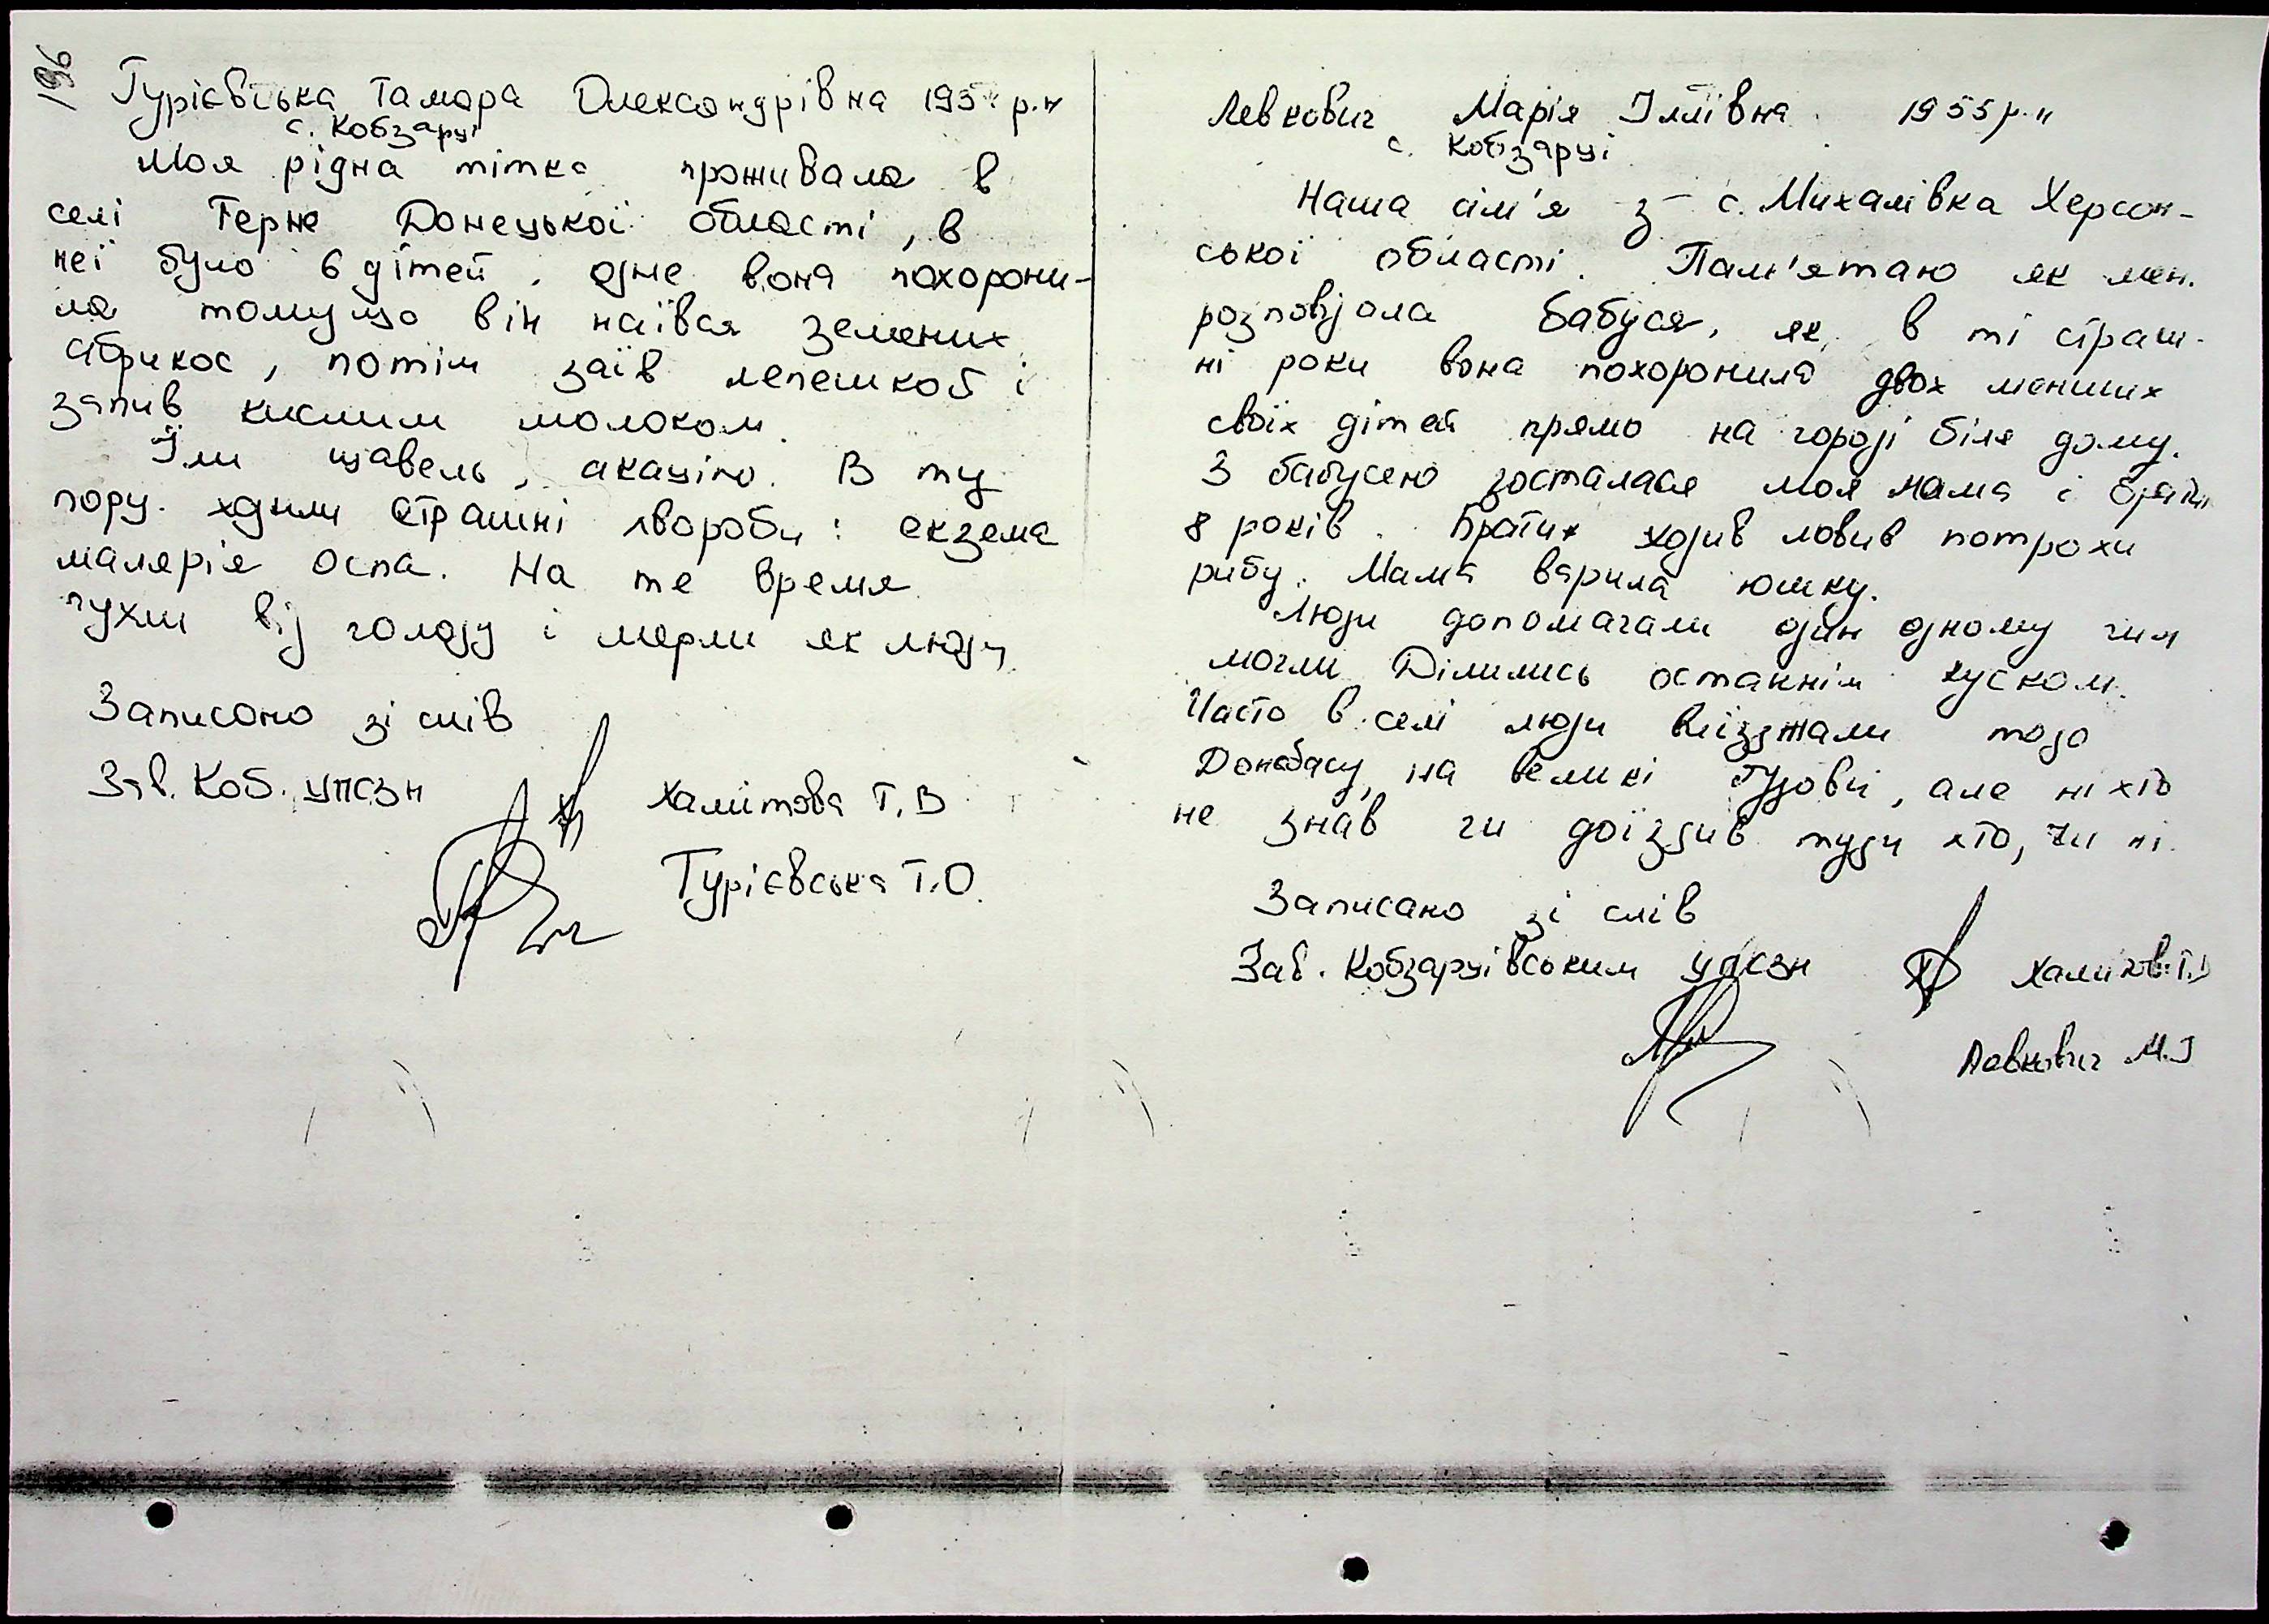 196
Гурієвська Тамара Олександрівна 195 р.н
с. Кобзарці
Моя рідна тітка проживала в
селі Терне Донецької області, в
неї було 6 дітей, одне вона похорони-
ла тому що він наївся зелених
абрикос, потім заїв лепешкоб і
запив кислим молоком.
Їли щавель, акацію. В ту
пору. ходили страшні хвороби: екзема
малярія оспа. На те время
пухли від голоду і мерли як люди
Записано зі слів
Зав. Коб. УПСЗН Халитова Т.В
Гурієвська Т.О.
Левкович Марія Іллівна 1955 р.н
с. Кобзарці
Наша сім'я з с. Михалівка Херсон-
ської області. Пам'ятаю як мен.
розповідала бабуся, як в ті страш-
ні роки вона похоронила двох менших
своїх дітей прямо на городі біля дому.
З бабусею зосталася моя мама і
8 років. Братик ходив ловив потрохи
рибу. Мама варила юшку.
Люди допомагали один одному чим
могли Ділились останнім куском.
Часто в селі люди виїзджали тодо
Донбасу, на великі, але ніхто
не знав чи доїздив туди хто, чи ні.
Записано зі слів
Зав. Кобзарцівським УПСЗН
Левкович М.І